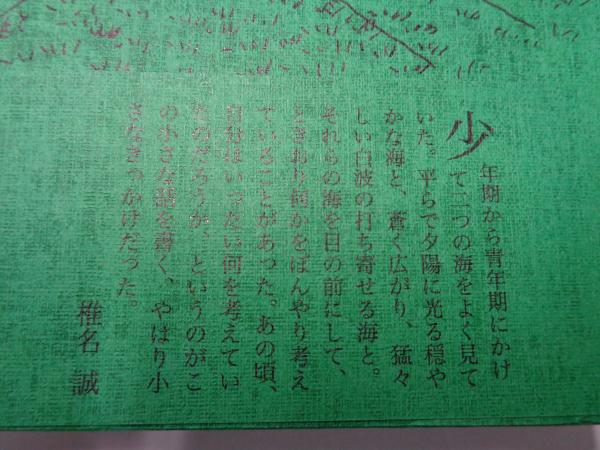 少年期から青年期にかけ
て二つの海をよく見て
いた。平らで夕陽に光る穏や
かな海と、蒼く広がり、猛々
しい白波の打ち寄せる海と。
それらの海を目の前にして、
ときおり何かをぼんやり考え
ていることがあった。あの頃、
自分はいったい何を考えてい
たのだろうか、というのがこ
の小さな話を書く、やはり小
さなきっかけだった。
椎名 誠